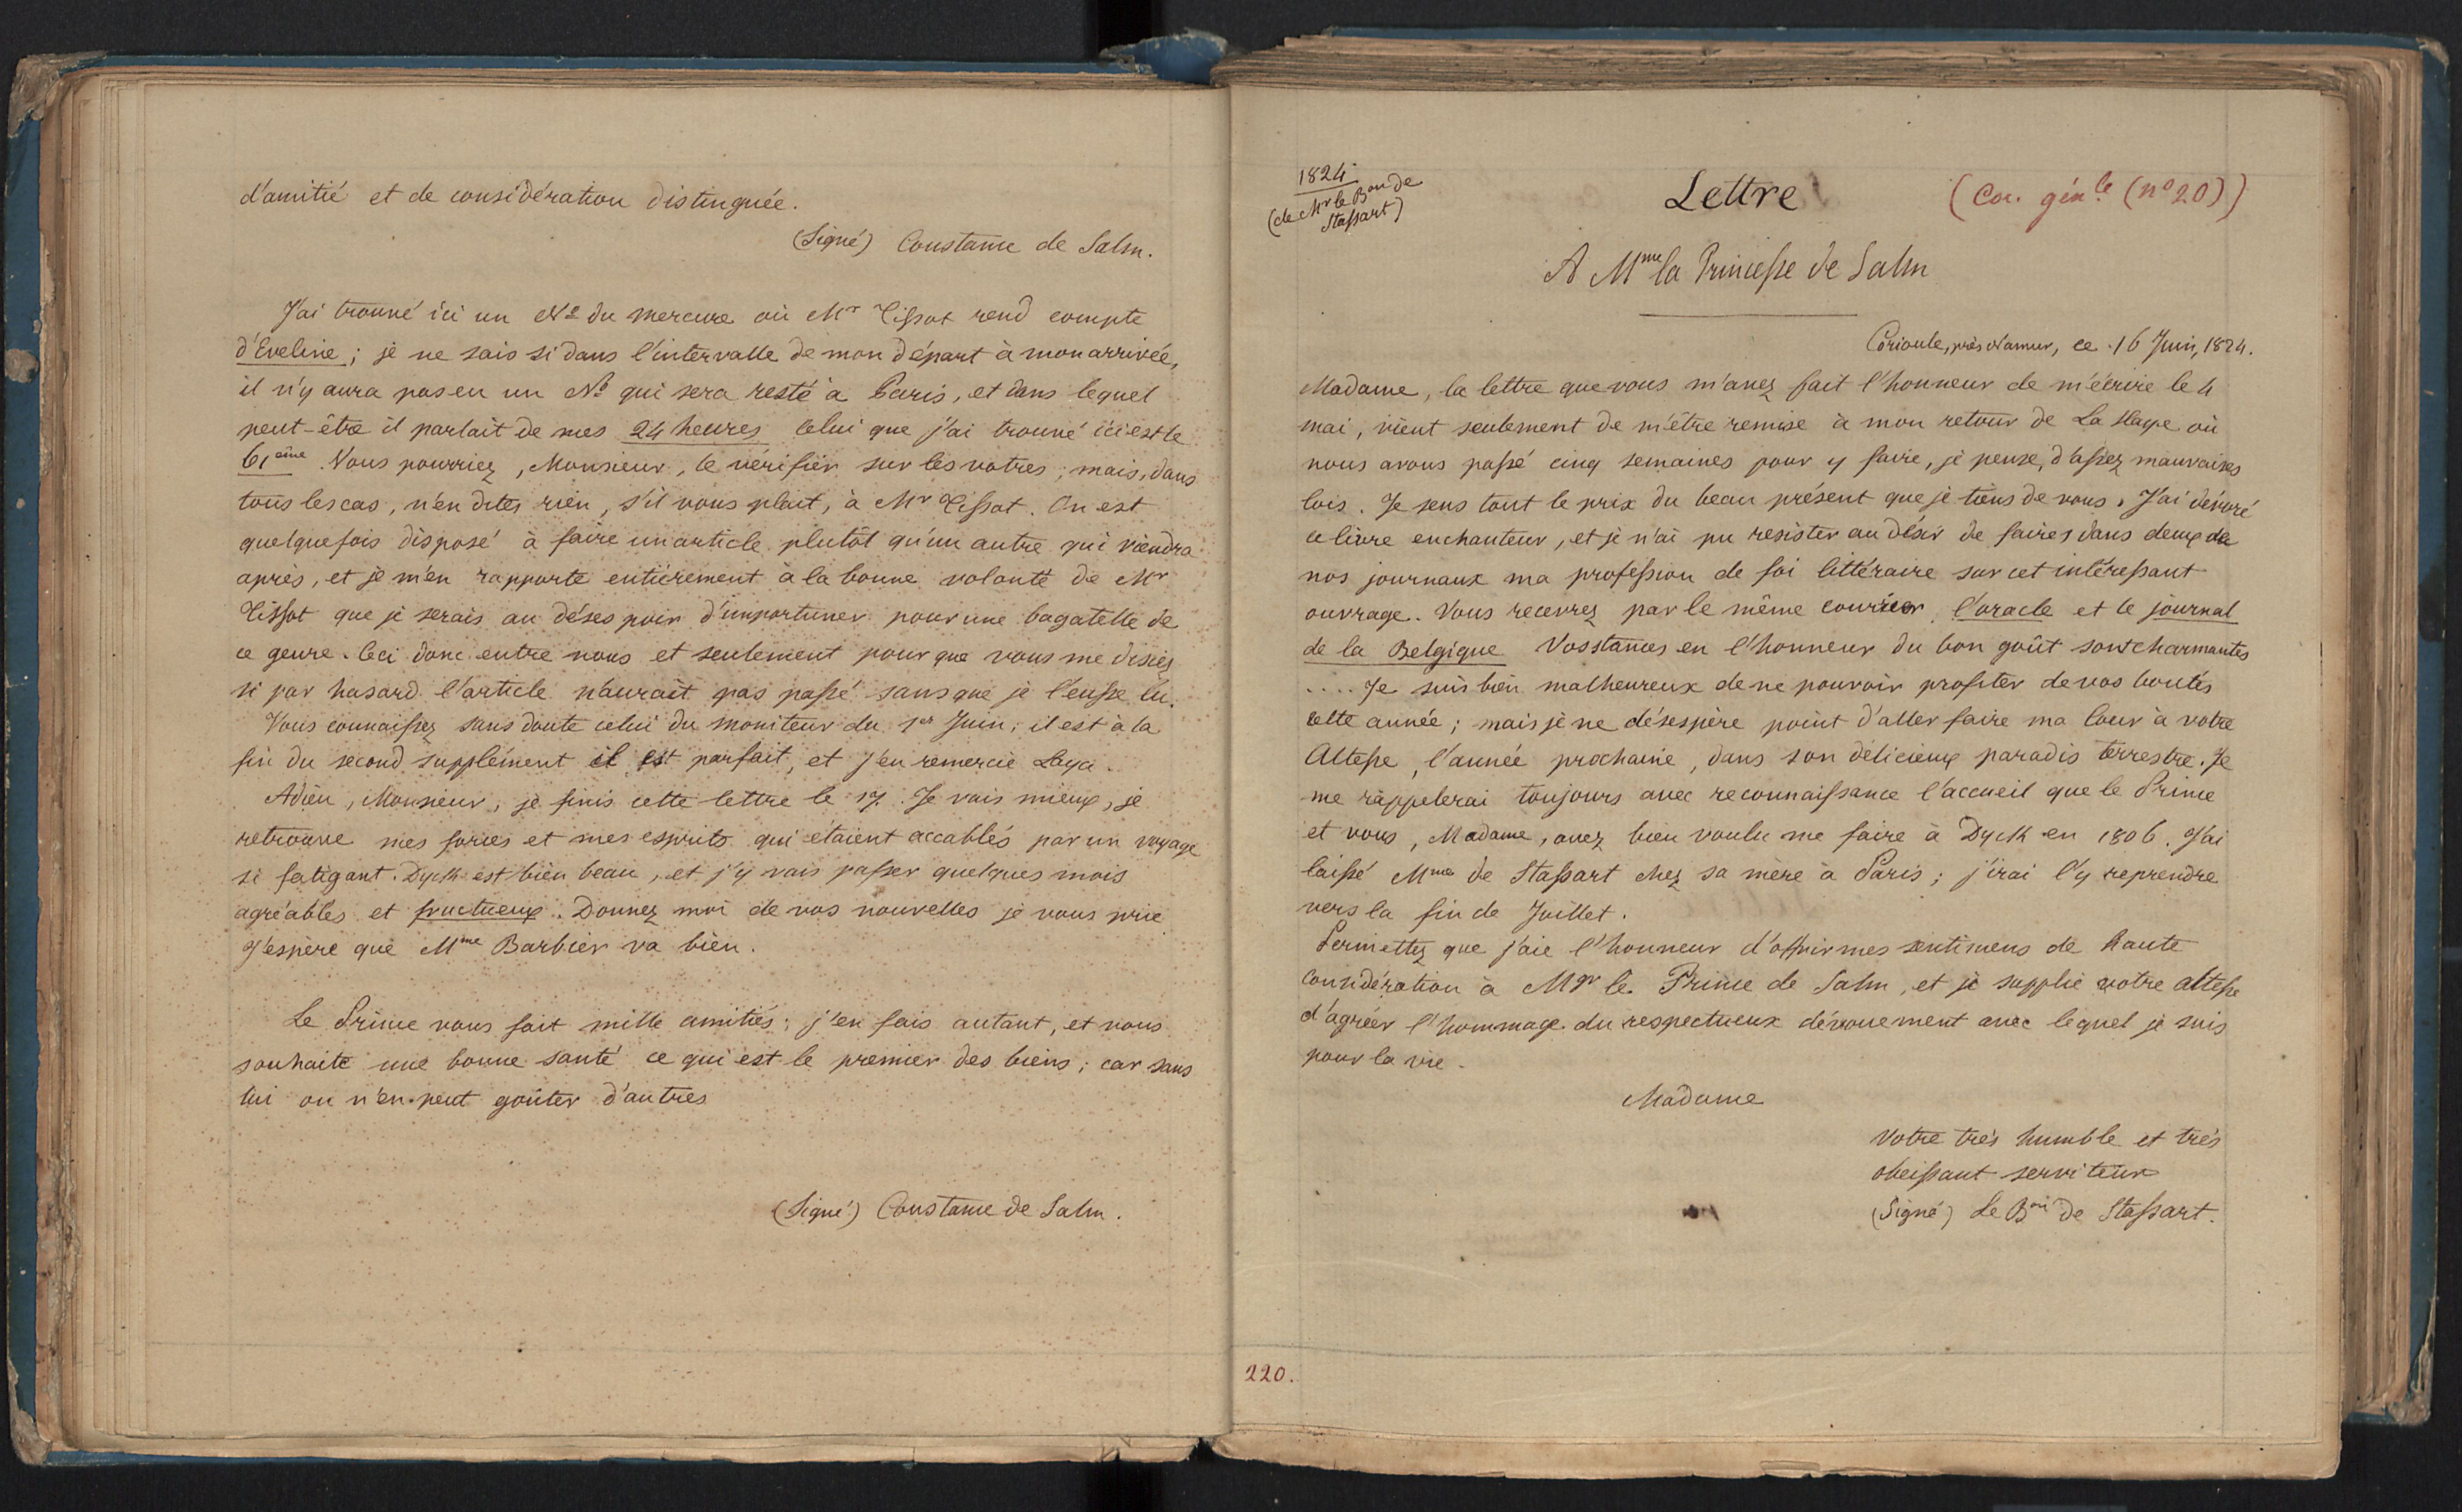 d'amitié et de considération distinguée.
(Signé) Constance de Salm.
J'ai trouvé ici un No du mercure où Mr Tissot rend compte
d'Eveline ; je ne sais si dans l'intervalle de mon départ à mon arrivée,
il n'y aura pas eu un No qui sera resté à Paris, et dans lequel
peut-être il parlait de mes 24 heures celui que j'ai trouvé ici est le
61ème. Vous pourriez, Monsieur, le vérifier sur les votres ; mais, dans
tous les cas, n'en dites rien, s'il vous plait, à Mr Tissot. On est
quelquefois disposé à faire un article plutôt qu'un autre qui viendra
après, et je m'en rapporte entièrement à la bonne volonté de Mr
Tissot que je serais au désespoir d'importuner pour une bagatelle de
ce genre. Ceci donc entre nous et seulement pour que vous me disiez
si par hasard l'article n'aurait pas passé sans que je l'eusse lu.
Vous connaissez sans doute celui du moniteur du 1er Juin ; il est à la
fin du second supplément il est parfait, et j'en remercie Laya.
Adieu, Monsieur, je finis cette lettre le 17. Je vais mieux, je
retrouve mes forces et mes esprits qui étaient accablés par un voyage
si fatigant. Dyck est bien beau, et j'y vais passer quelques mois
agréables et fructueux. Donnez moi de vos nouvelles je vous prie
J'espère que Mme Barbier va bien.
Le Prince vous fait mille amitiés ; j'en fais autant, et vous
souhaite une bonne santé ce qui est le premier des biens ; car sans
lui on n'en peut goûter d'autres
(Signé) Constance de Salm.
1824
(de Mr le Bon de
Stassart)
Lettre
(Cor. génle (no 20))
A Mme la Princesse de Salm
Corioule, près Namur, ce 16 Juin, 1824.
Madame, la lettre que vous m'avez fait l'honneur de m'écrire le 4
mai, vient seulement de m'être remise à mon retour de La Haye où
nous avons passé cinq semaines pour y faire, je pense, d'assez mauvaises
lois. Je sens tout le prix du beau présent que je tiens de vous. J'ai dévoré
ce livre enchanteur, et je n'ai pu resister au désir de faires dans deux de
nos journaux ma profession de foi littéraire sur cet intéressant
ouvrage. Vous recevrez par le même courrier l'oracle et le journal
de la Belgique Vos stances en l'honneur du bon goût sont charmantes
.... Je suis bien malheureux de ne pouvoir profiter de vos bontés
cette année ; mais je ne désespère point d'aller faire ma cour à votre
Altesse, l'année prochaine, dans son délicieux paradis terrestre. Je
me rappelerai toujours avec reconnaissance l'accueil que le Prince
et vous, Madame, avez bien voulu me faire à Dyck en 1806. J'ai
laissé Mme de Stassart chez sa mère à Paris ; j'irai l'y reprendre
vers la fin de Juillet.
Permettez que j'aie l'honneur d'offrir mes sentimens de haute
considération à Mgr le Prince de Salm, et je supplie votre altesse
d'agréer l'hommage du respectueux dévouement avec lequel je suis
pour la vie.
Madame
Votre très humble et très
obeissant serviteur
(Signé) Le Bon de Stassart.
220.